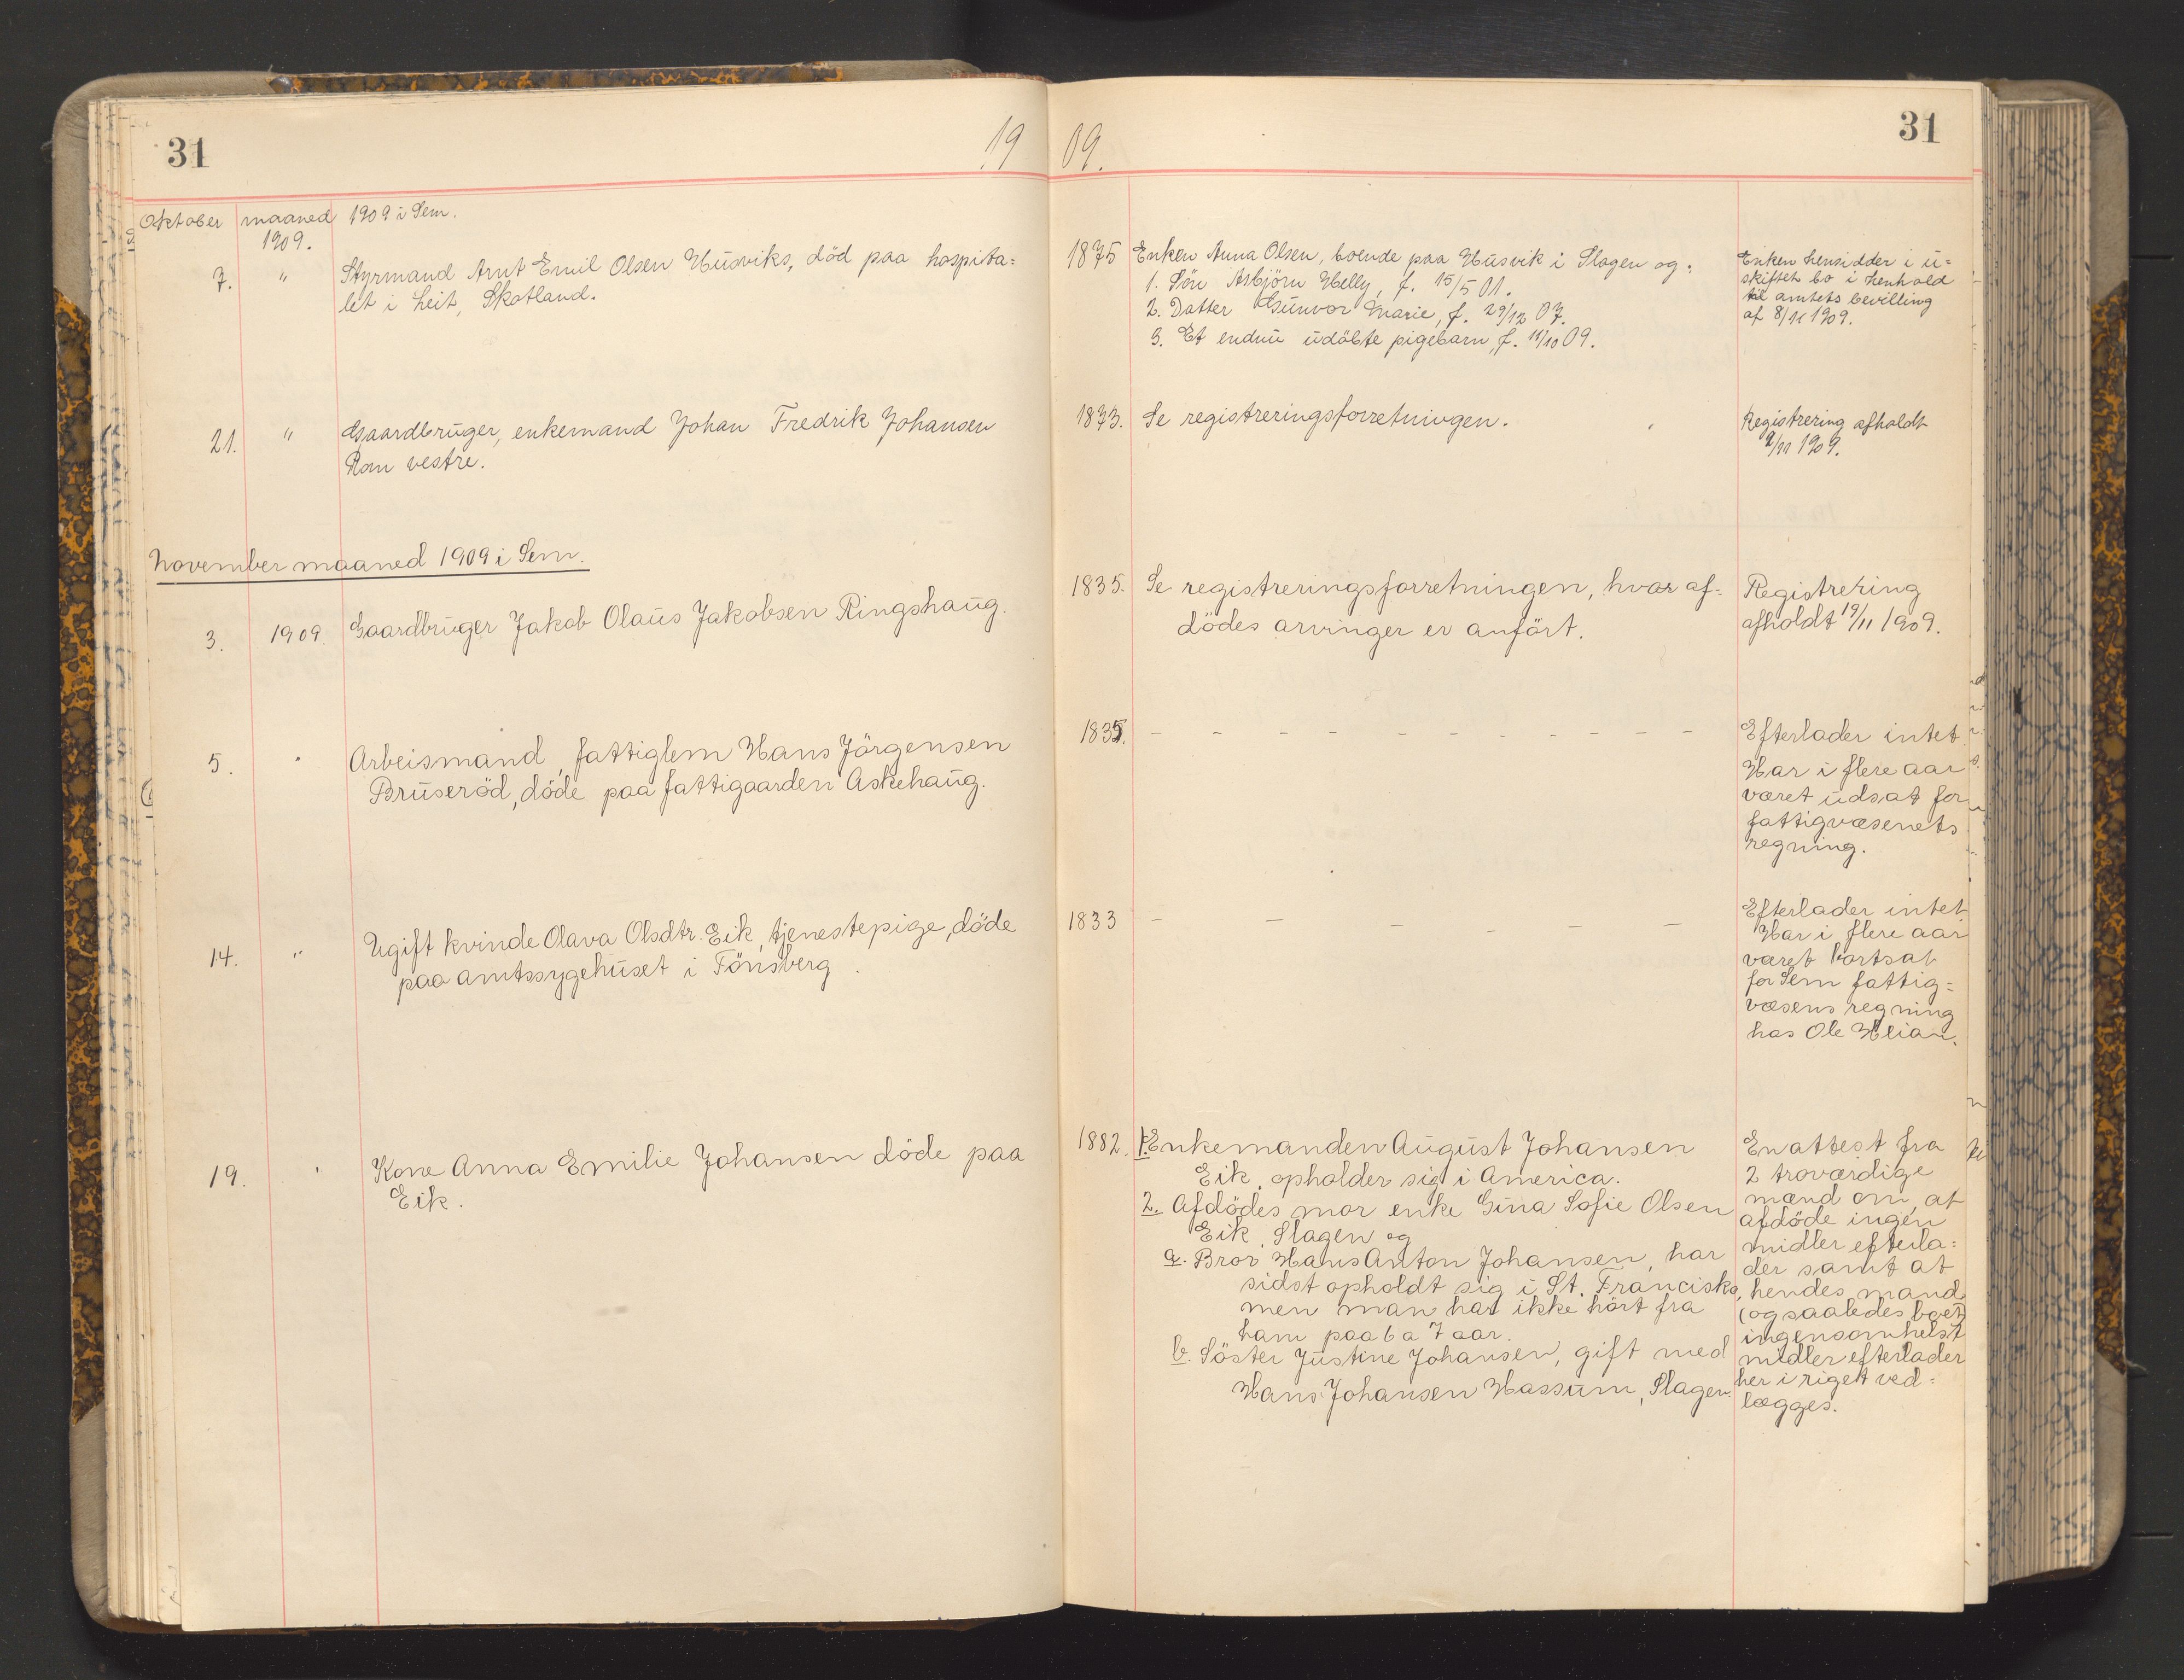 31
19
09.
31
Oktober maaned 1909 i Sem.
1909.
7. " Styrmand Arnt Emil Olsen Husviks, död paa hospita=
let i Leit, Skotland.
1875 Enken Anna Olsen, boende paa Husvik i Slagen og:
1. Sön Asbjörn Helly, f. 15/5 01.
2. Datter Gunvor Marie, f. 29/12 07.
3. Et endnu udöbte pigebarn, f. 11/10 09.
Enken hensidder i u=
skiftet bo i henhold
til amtets bevilling
af 8/11 1909.
21. " Gaardbruger, enkemand Johan Fredrik Johansen
Rom vestre.
1873. Se registreringsforretningen.
Registrering afholdt
2/11 1909.
November maaned 1909 i Sem.
3. 1909 Gaardbruger Jakob Olaus Jakobsen Ringshaug.
1835. Se registreringsforretningen, hvor af=
dödes arvinger er anfört.
Registrering
afholdt 19/11 1909.
5. " Arbeismand, fattiglem Hans Jörgensen
Bruseröd, döde paa fattigaarden Askehaug.
1835. - - - - - - - - - - -
Efterlader intet.
Har i flere aar
været udsat for
fattigvæsenets
regning.
14. " Ugift kvinde Olava Olsdtr. Eik, tjenestepige, döde
paa amtssygehuset i Tönsberg.
1833 - - - - - -
Efterlader intet.
Har i flere aar
været bortsat
for Sem fattig=
væsens regning
hos Ole Wlian.
19. " Kone Anna Emilie Johansen döde paa
Eik.
1882. 1. Enkemanden August Johansen
Eik, opholder sig i America.
2. Afdödes mor enke Gina Sofie Olsen
Eik, Slagen og
a. Bror Hans Anton Johansen, har
sidst opholdt sig i St. Francisko,
men man har ikke hört fra
ham paa 6 a 7 aar.
b. Söster Justine Johansen, gift med
Hans Johansen Hassum, Slagen.
En attest fra
2 troværdige
mænd om, at
afdöde ingen
midler efterla=
der samt at
hendes mand
(og saaledes boet)
ingensomhelst
midler efterlader
her i riget ved=
lægges.